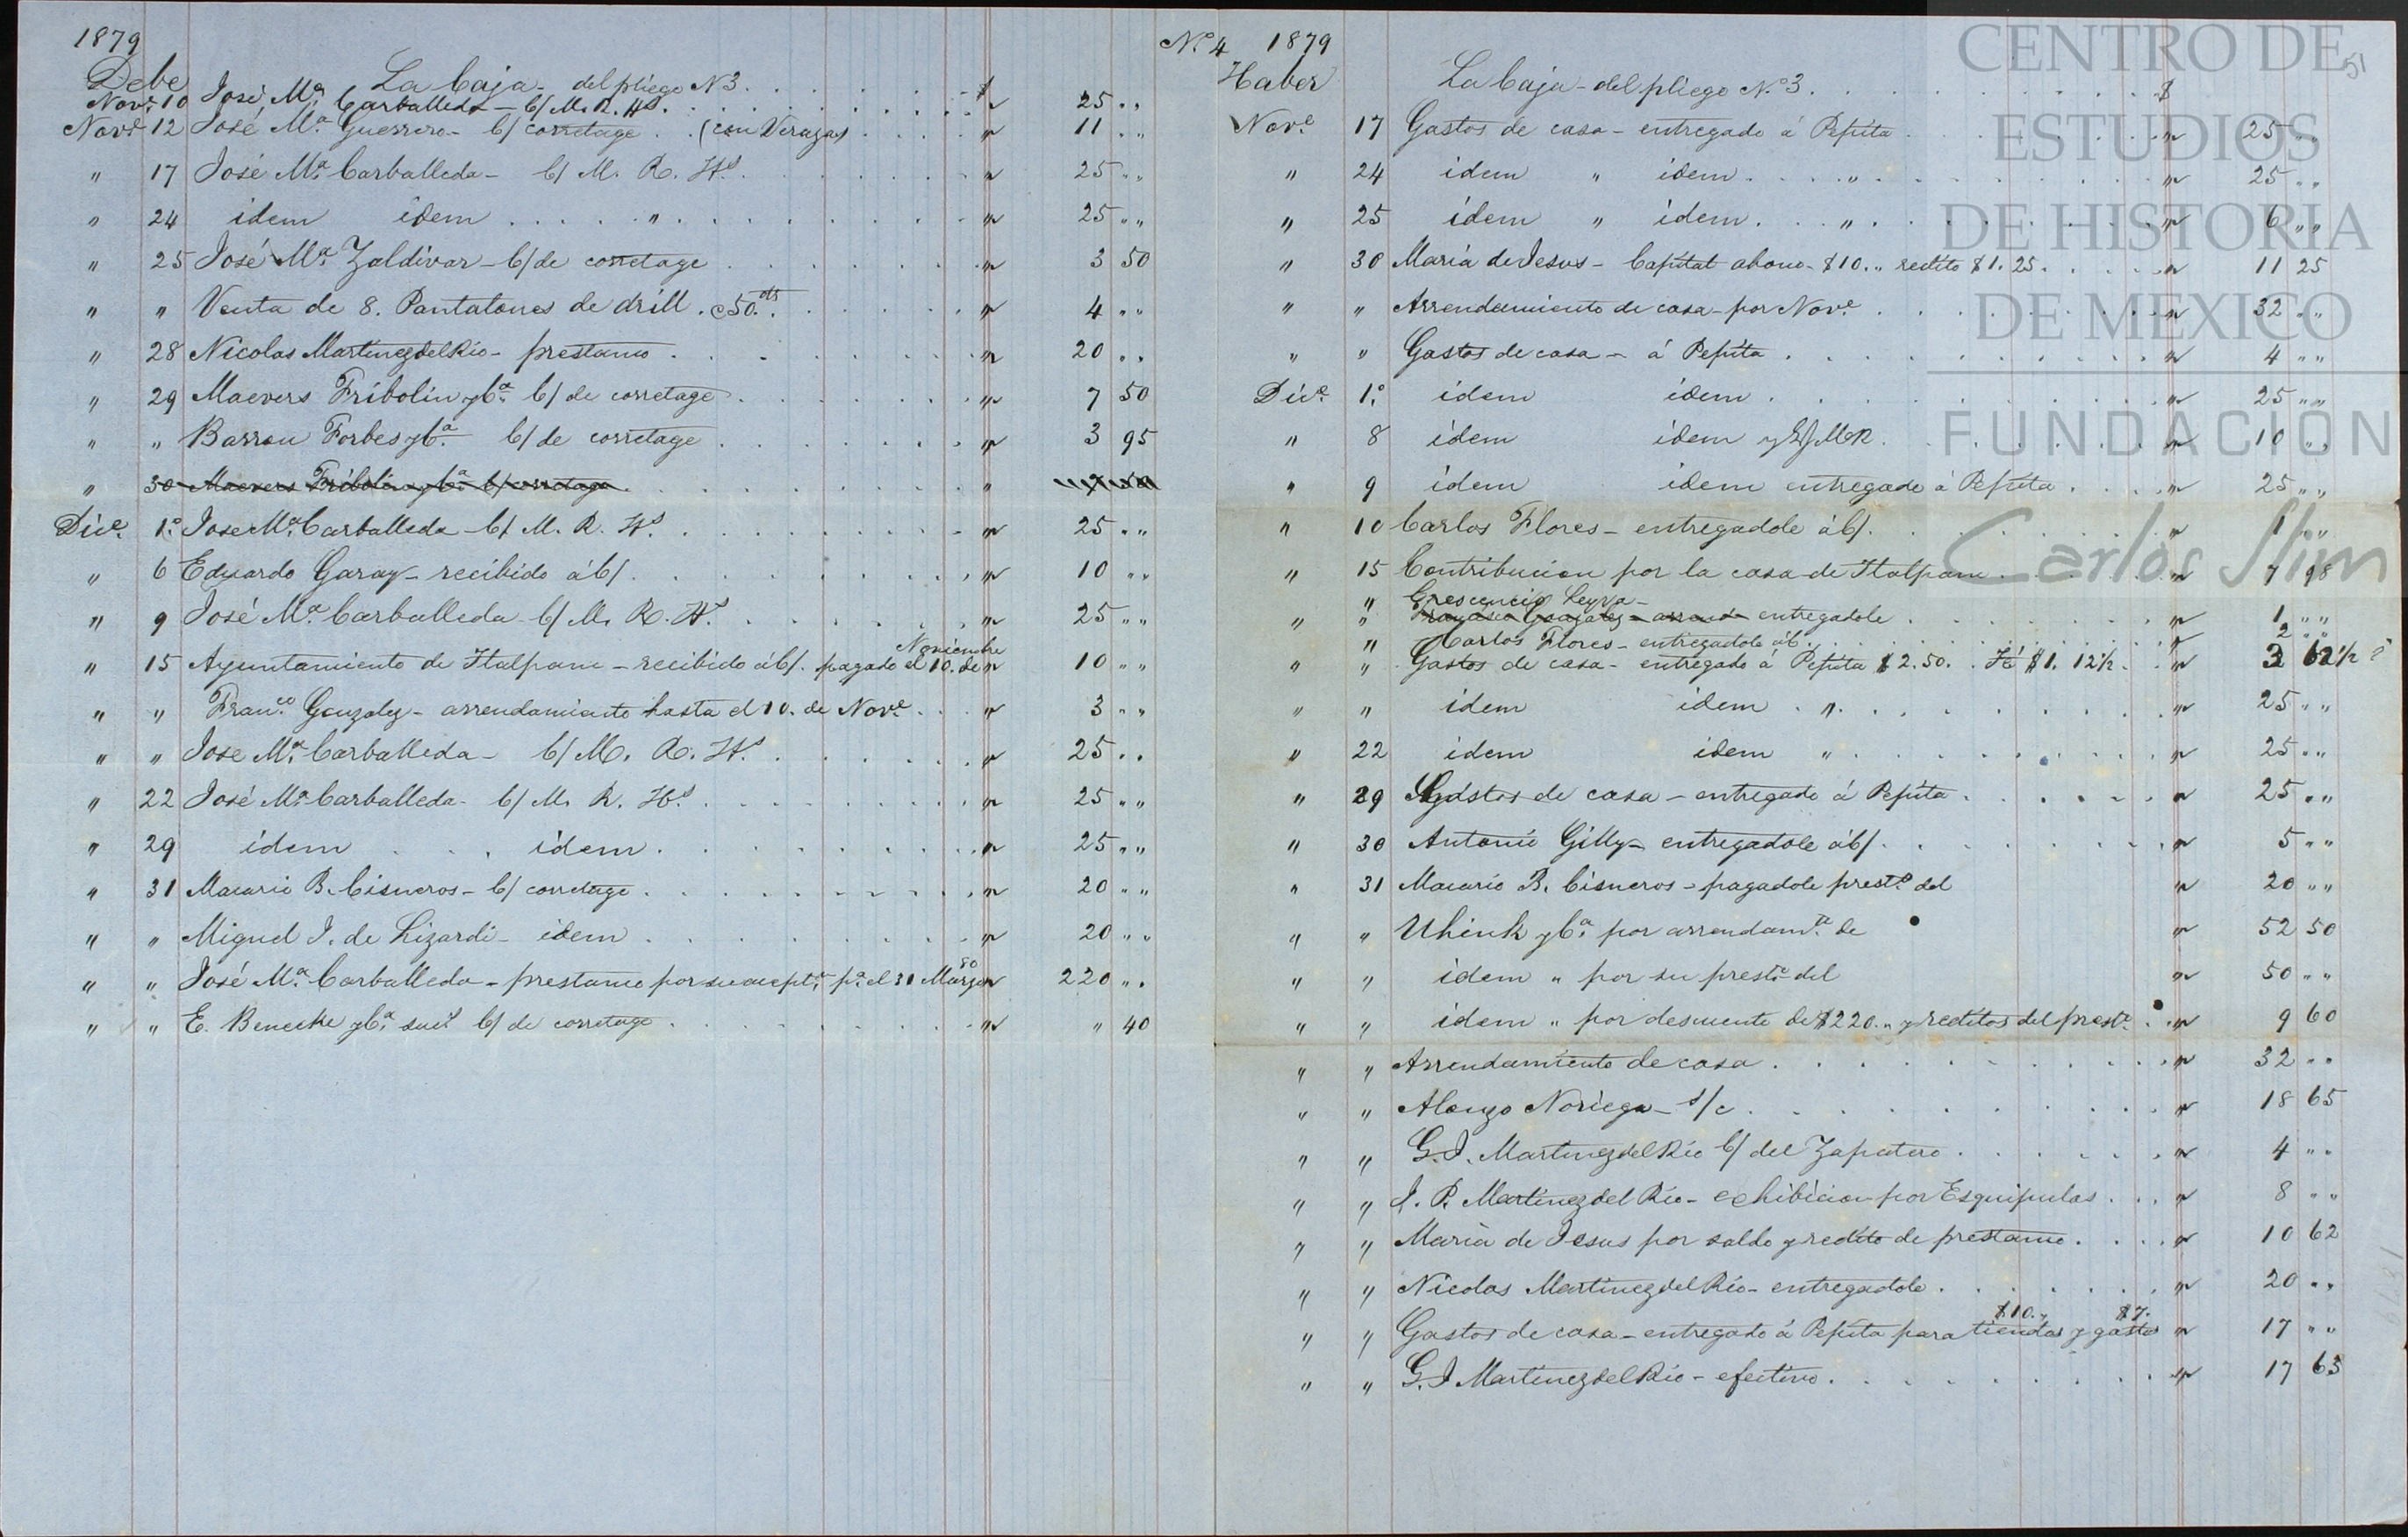 1879
Debe La Caja - del pliego N 3. $
Nov.e 10 José M.a Carballeda - C/ M. R. Hs. " 25 "
Nov.e 12 José M.a Guerrero - C/ corretage . . (con Veraza) " 11 "
" 17 José M.a Carballeda - C/ M. R. Hs. " 25 "
" 24 idem idem " " 25 "
" 25 José M.a Zaldivar - C/ de corretage " 3 50
" " Venta de 8. Pantalones de drill . c50.cts " 4 "
" 28 Nicolas Martinez del Rio - prestamo " 20 "
" 29 Maevers Fribolin y C.a C/ de corretage " 7 50
" " Barron Forbes y C.a C/ de corretage " 3 95
" 30 Maevers Fribolin y C.a C/ corretage "
Dic.e 1.o Jose M.a Carballeda - C/ M. R. Hs. " 25 "
" 6 Eduardo Garay - recibido á C/ " 10 "
" 9 José M.a Carballeda C/ M. R. Hs. " 25 "
" 15 Ayuntamiento de Tlalpam - recibido á C/. pagado el 10. de Noviembre " 10 "
" " Fran.co Gonzalez - arrendamiento hasta el 10. de Nov.e " 3 "
" " Jose M.a Carballeda - C/ M. R. Hs. " 25 "
" 22 José M.a Carballeda - C/ M. R. Hs. " 25 "
" 29 idem idem " 25 "
" 31 Macario B. Cisneros - C/ corretage " 20 "
" " Miguel J. de Lizardi - idem " 20 "
" " José M.a Carballeda - prestamo por su acept.n p.a el 31 Marzo 80 " 220 "
" " E. Benecke y C.a suc.s C/ de corretage " " 40
N.o 4 1879
51
Haber La Caja - del pliego N.o 3. $
Nov.e 17 Gastos de casa - entregado á Pepita " 25 "
" 24 idem " idem " " 25 "
" 25 idem " idem " " 6 "
" 30 Maria de Jesus - Capital abono - $10. " redito $1. 25. " 11 25
" " Arrendamiento de casa - por Nov.e " 32 "
" " Gastos de casa - á Pepita " 4 "
Dic.e 1.o idem idem " 25 "
" 8 idem idem y " 10 "
" 9 idem idem entregado á Pepita " 25 "
" 10 Carlos Flores - entregadole á C/. " 1 "
" 15 Contribucion por la casa de Tlalpam " 7 98
" Crescencio Leyva -
" " Francisco Gonzalez - entregadole " 1 "
" Carlos Flores - entregadole á C/. " 2 "
" " Gastos de casa - entregado á Pepita $2.50. . Té $1. 12½ " 3 62½ ?
" " idem idem . " " 25 "
" 22 idem idem " " 25 "
" 29 Gastos de casa - entregado á Pepita " 25 "
" 30 Antonio Gilly - entregadole á C/. " 5 "
" 31 Macario B. Cisneros - pagadole prest.o del " 20 "
" " Uhink y C.a por arrendam.to de " 52 50
" " idem " por su prest.o del " 50 "
" " idem " por descuento de $220. " y reditos del prest.o " 9 60
" " Arrendamiento de casa " 32 "
" " Alonzo Noriega - s/c " 18 65
" " G. J. Martinez del Rio C/ del Zapatero " 4 "
" " J. P. Martinez del Rio - exhibicion por Esquipulas " 8 "
" " Maria de Jesus por saldo y redito de prestamo " 10 62
" " Nicolas Martinez del Rio - entregadole " 20 "
" " Gastos de casa - entregado á Pepita para tiendas $10. " y gastos $7. " 17 "
" " G. J Martinez del Rio - efectivo " 17 63
CENTRO DE
ESTUDIOS
DE HISTORIA
DE MEXICO
FUNDACIÓN
Carlos Slim